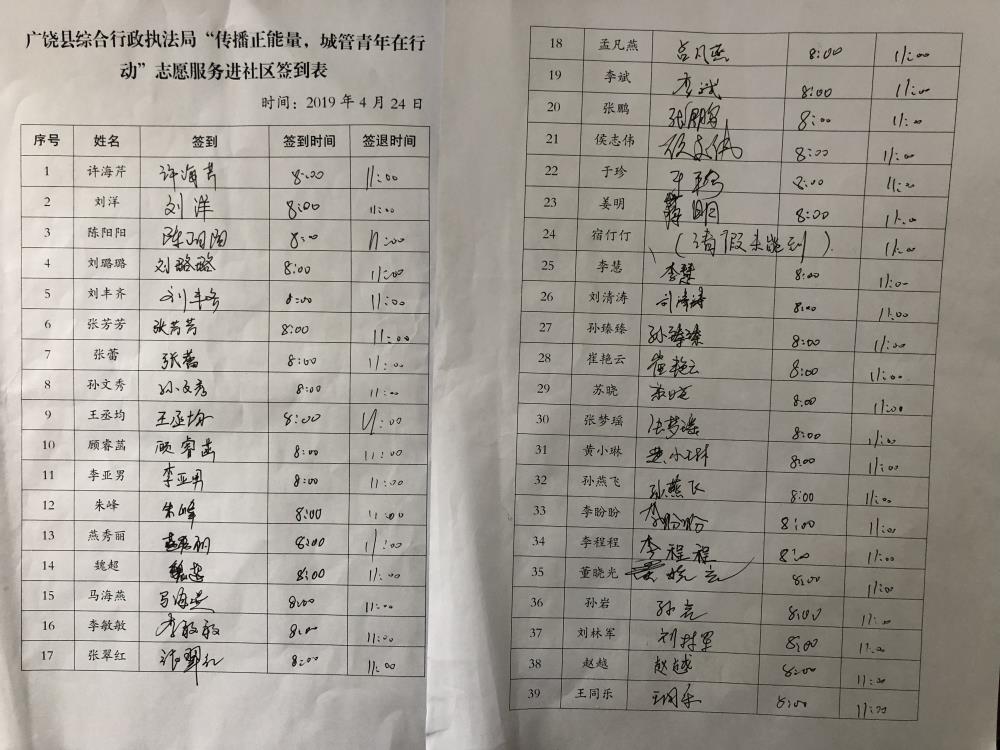 广饶县综合行政执法局“传播正能量，城管青年在行
动”志愿服务进社区签到表
时间：2019 年 4 月 24 日
序号 姓名 签到 签到时间 签退时间
1 许海芹 许海芹 8:00 11:00
2 刘洋 刘洋 8:00 11:00
3 陈阳阳 陈阳阳 8:00 11:00
4 刘璐璐 刘璐璐 8:00 11:00
5 刘丰齐 刘丰齐 8:00 11:00
6 张芳芳 张芳芳 8:00 11:00
7 张蕾 张蕾 8:00 11:00
8 孙文秀 孙文秀 8:00 11:00
9 王丞均 王丞均 8:00 11:00
10 顾睿菡 顾睿菡 8:00 11:00
11 李亚男 李亚男 8:00 11:00
12 朱峰 朱峰 8:00 11:00
13 燕秀丽 燕秀丽 8:00 11:00
14 魏超 魏超 8:00 11:00
15 马海燕 马海燕 8:00 11:00
16 李敏敏 李敏敏 8:00 11:00
17 张翠红 张翠红 8:00 11:00
18 孟凡燕 孟凡燕 8:00 11:00
19 李斌 李斌 8:00 11:00
20 张鹏 张鹏 8:00 11:00
21 侯志伟 侯志伟 8:00 11:00
22 于珍 于珍 8:00 11:00
23 姜明 姜明 8:00 11:00
24 宿仃仃 （请假未能到） 11:00
25 李慧 李慧 8:00 11:00
26 刘清涛 刘清涛 8:00 11:00
27 孙臻臻 孙臻臻 8:00 11:00
28 崔艳云 崔艳云 8:00 11:00
29 苏晓 苏晓 8:00 11:00
30 张梦瑶 张梦瑶 8:00 11:00
31 黄小琳 黄小琳 8:00 11:00
32 孙燕飞 孙燕飞 8:00 11:00
33 李盼盼 李盼盼 8:00 11:00
34 李程程 李程程 8:00 11:00
35 董晓光 董晓光 8:00 11:00
36 孙岩 孙岩 8:00 11:00
37 刘林军 刘林军 8:00 11:00
38 赵越 赵越 8:00 11:00
39 王同乐 王同乐 8:00 11:00